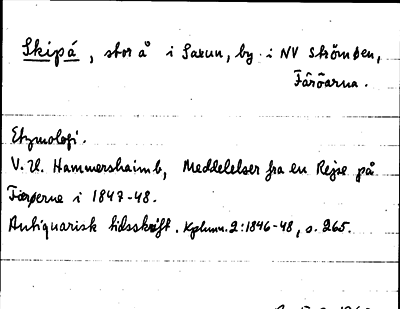 Skipá, stor å i Saxun, by i NV Strömöen,
Färöarna.
Etymologi.
V. U. Hammershaimb, Meddelelser fra en Rejse på
Færøerne i 1847-48.
Antiquarisk tidsskrift. Kphmn. 2:1846-48, s. 265.